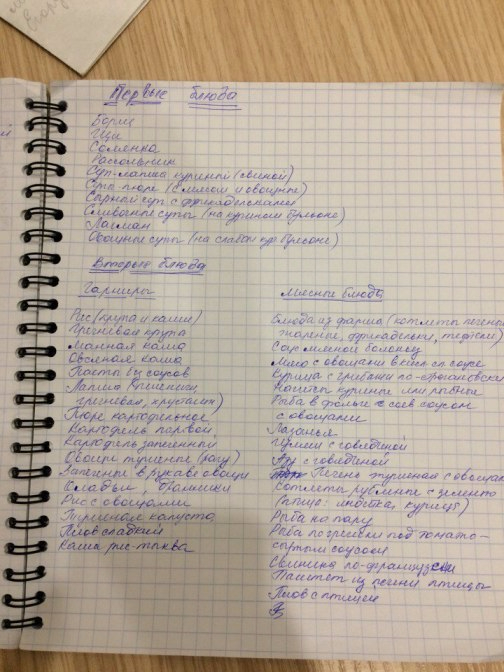 Первые блюда
Борщ
Щи
Солянка
Рассольник
Суп-лапша куриный (свиной)
Супы-пюре (с мясом и овощные)
Сырный суп с фрикадельками
Сливочные супы (на курином бульоне)
Лагман
Овощные супы (на слабом кур бульоне)
Вторые блюда
Гарниры
Рис (крупа и каши)
Гречневая крупа
Манная каша
Овсяная каша
Пасты без соусов
Лапша
гречневая, хрустальн)
Пюре картофельное
Картофель паровой
Картофель запеченный
Овощи тушеные (рагу)
Запечённые в рукаве овощи
Оладьи, драники
Рис с овощами
Тушеная капуста
Плов сладкий
Каша рис-тыква
Мясные блюда
Блюда из фарша (котлеты печень
жареные, фрикадельки, тефтели)
Соус мясной болоньез
Мясо с овощами в кисл сл соусе
Курица с грибами по-
Наггетсы куриные или рыбные
Рыба в фольге с соев соусом
с овощами
Лазанья
Гуляш с говядиной
Азу с говядиной
Печень тушеная с овощам
Котлеты рубленые с зеленью
(птица: индейка, курица)
Рыба на пару
Рыба по-гречески под томатно-
сырным соусом
Свинина по-французски
Паштет из печени птицы
Плов с птицей